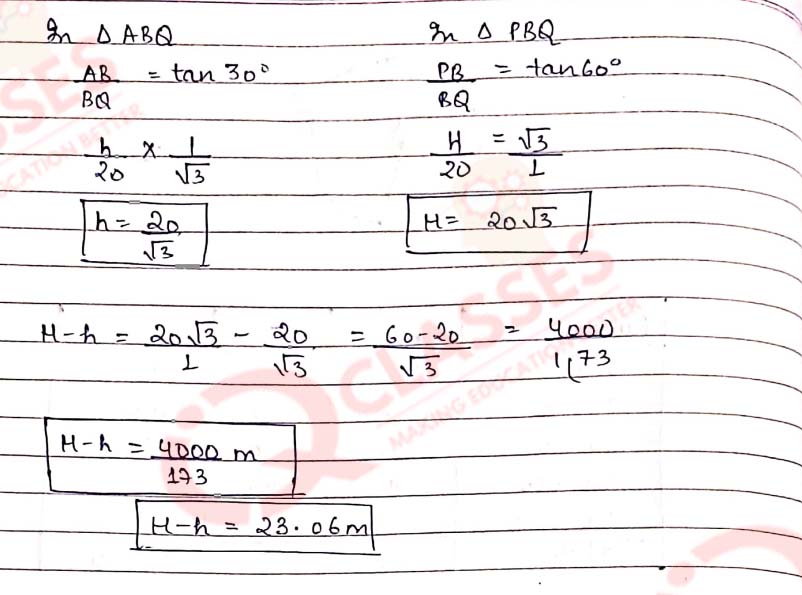 In △ ABQ
AB/BQ = tan 30°
h/20 × 1/√3
h = 20/√3
In △ PBQ
PB/BQ = tan 60°
H/20 = √3/1
H = 20√3
H-h = 20√3/1 - 20/√3 = 60-20/√3 = 4000/1(73
H-h = 4000/173 m
H-h = 23.06m
CLASSES
MAKING EDUCATION BETTER